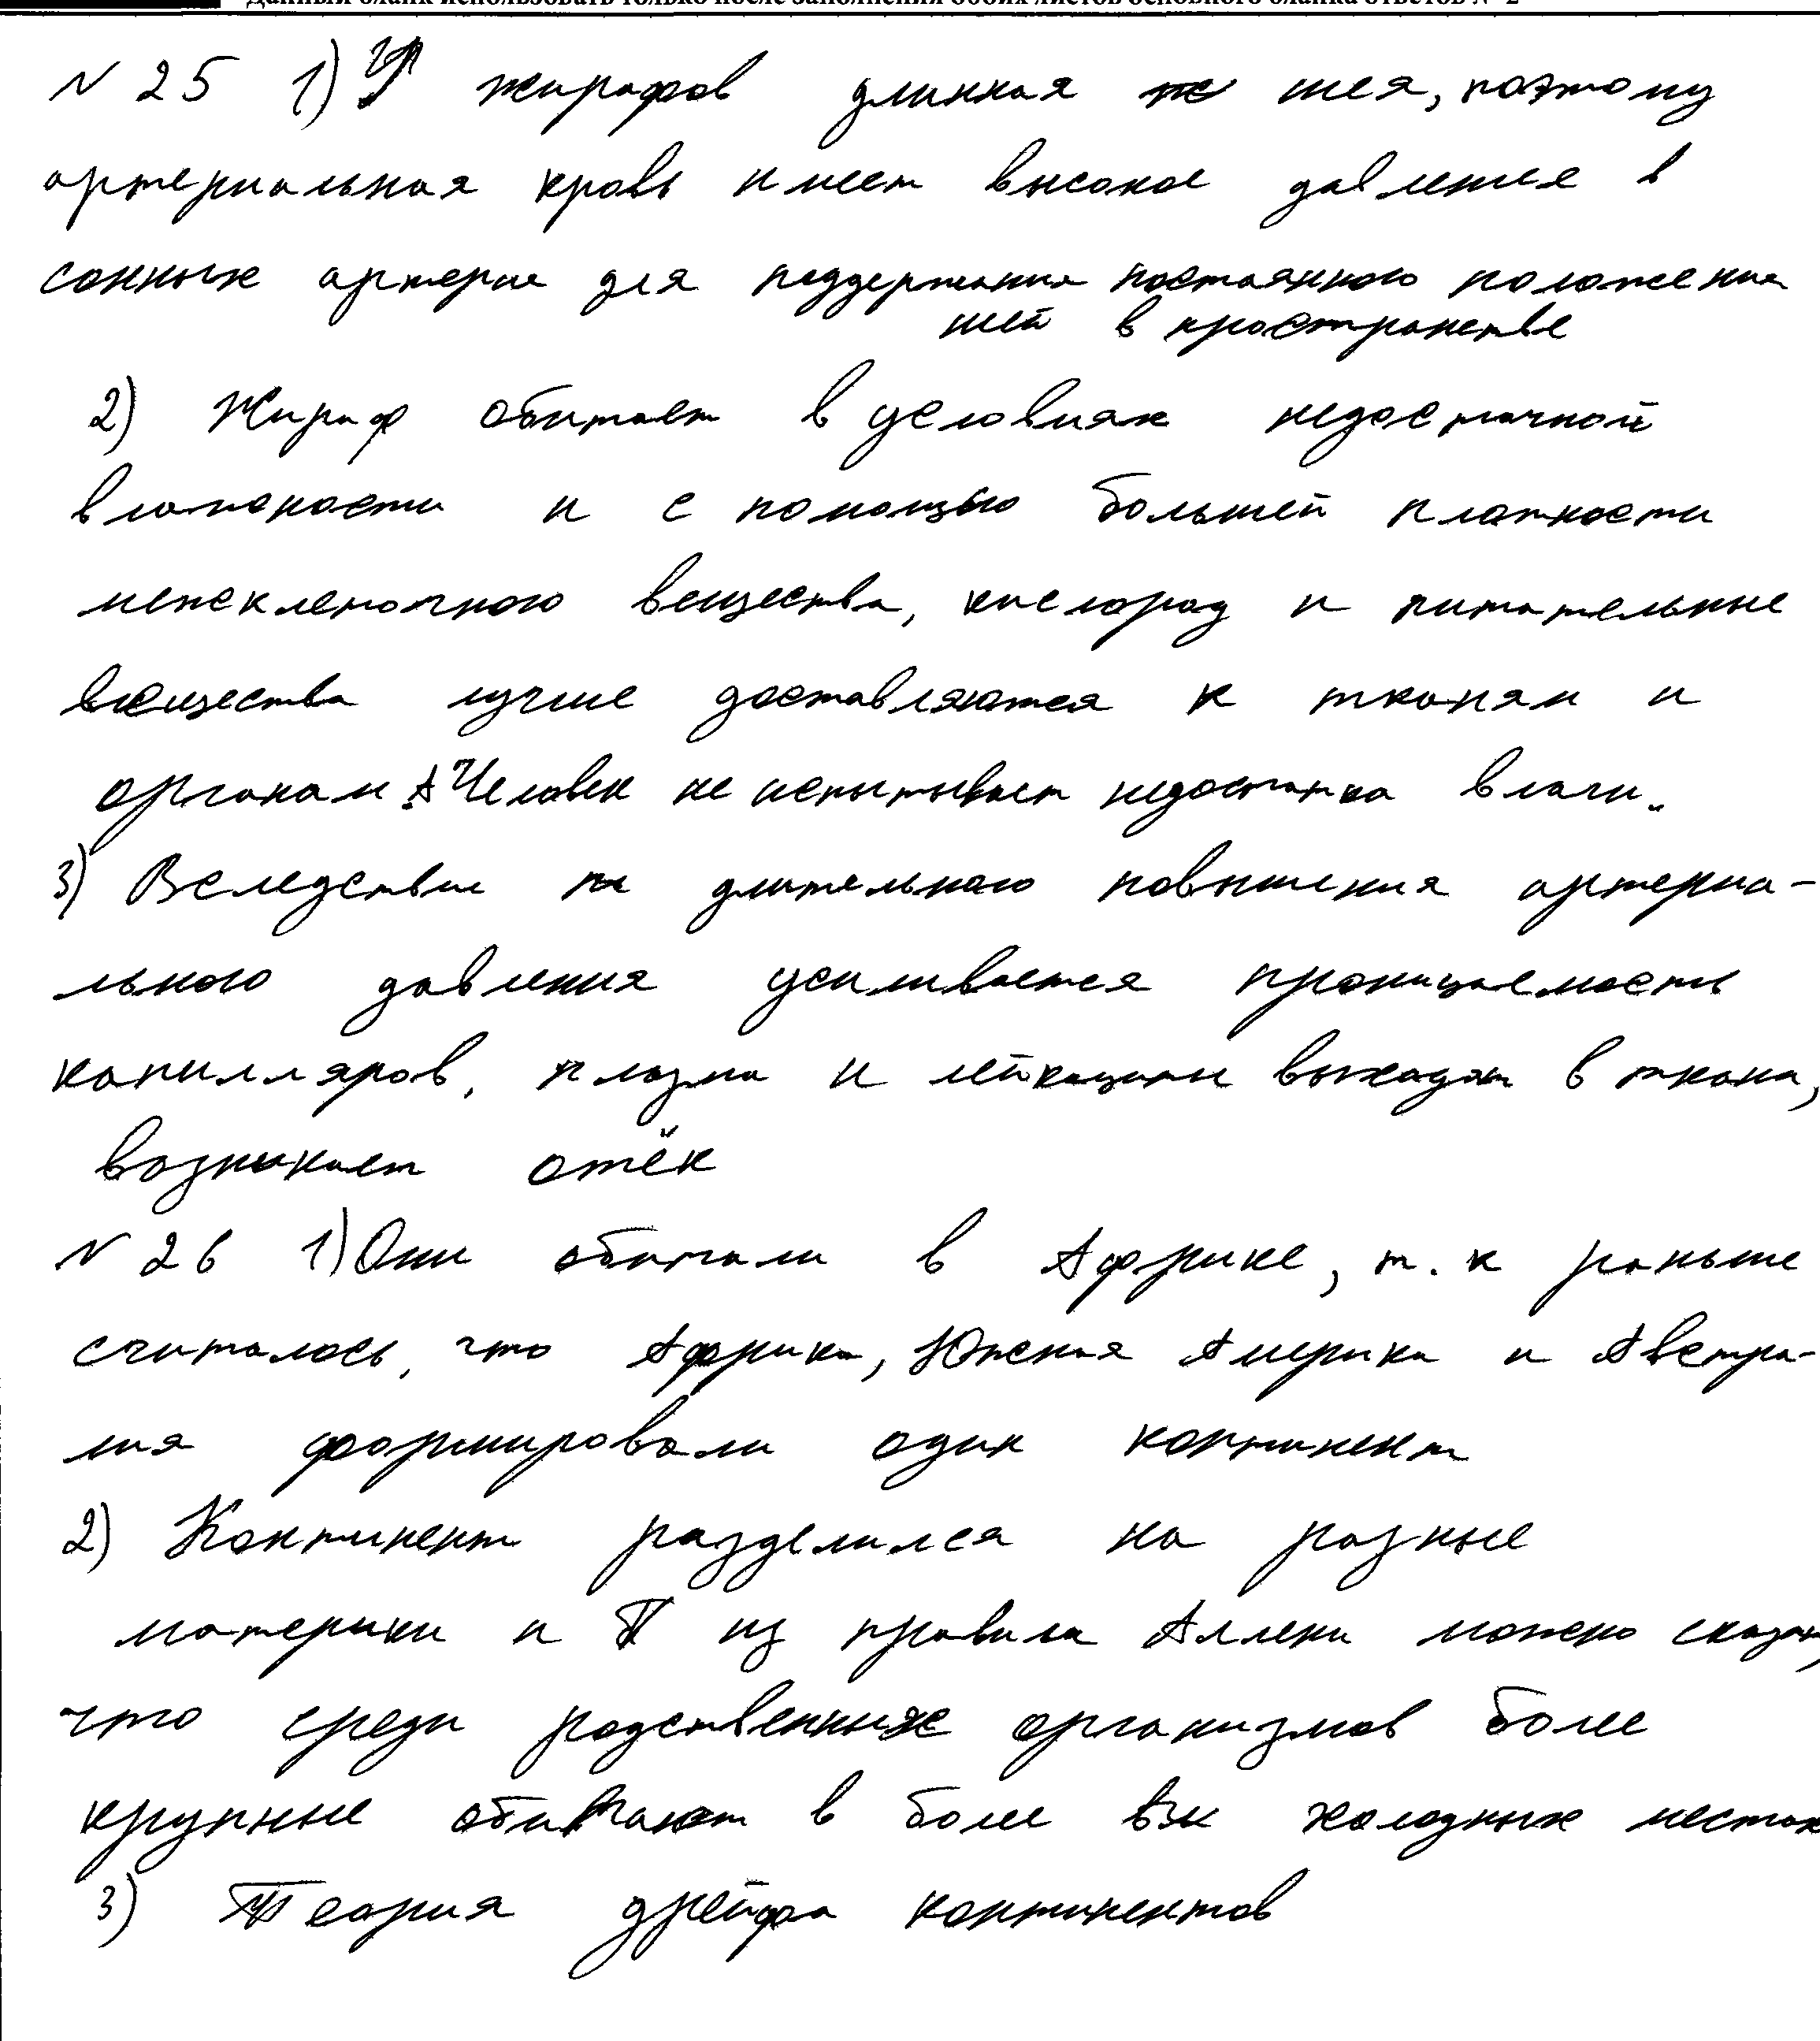 Данный бланк использовать только после заполнения обоих листов основного бланка ответов № 2
N 25 1) У жирафов длинная шея, поэтому
артериальная кровь имеет высокое давление в
сонных артерие для поддержания постоянного положения
шей в пространстве
2) Жираф обитает в условиях недостачной
влажности и с помощью большей плотности
межклеточного вещества, кислород и питательные
вещества лучше доставляются к тканям и
органам. Человек не испытывает недостатка влаги.
3) Вследствие длительного повышения артериа-
льного давления усиливается проницаемость
капилляров, плазма и лейкоциты выходят в ткани,
возникает отёк
N 26 1) Они обитали в Африке, т.к раньше
считалось, что Африка, Южная Америка и Австра-
лия формировали один континент
2) Континент разделился на разные
материки и из правила Аллена можно сказать,
что среди родственных организмов более
крупные обитают в более холодных местах
3) Теория дрейфа континентов